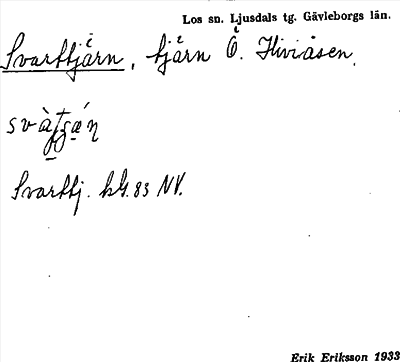 Los sn. Ljusdals tg. Gävleborgs län.
Svarttjärn, tjärn Ö. Hiviåsen.
Svarttj. kbl. 83 NV.
Erik Eriksson 1933